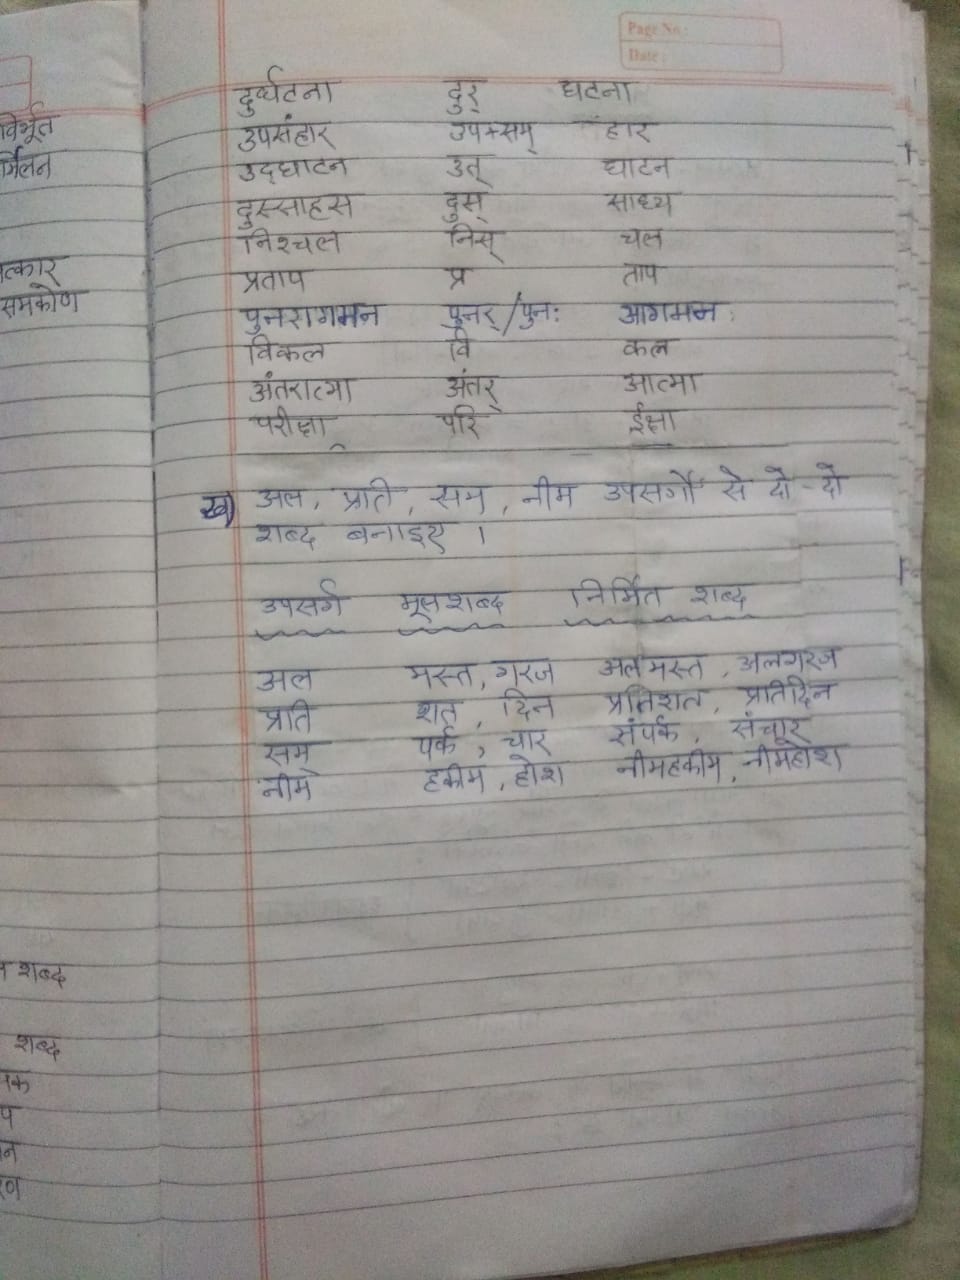 Page No:
Date:
दुर्घटना दुर् घटना
उपसंहार उप+सम् हार
उद्घाटन उत् घाटन
दुस्साहस दुस् साध्य
निश्चल निस् चल
प्रताप प्र ताप
पुनरागमन पुनर्/पुनः आगमन
विकल वि कल
अंतरात्मा अंतर् आत्मा
परीक्षा परि ईक्षा
ख) अल, प्रति, सम्, नीम उपसर्गों से दो-दो
शब्द बनाइए ।
उपसर्ग मूलशब्द निर्मित शब्द
अल मस्त, गरज अलमस्त, अलगरज
प्रति शत, दिन प्रतिशत, प्रतिदिन
सम् पर्क, चार संपर्क, संचार
नीम हकीम, होश नीमहकीम, नीमहोश
त्कार
समकोण
शब्द
शब्द